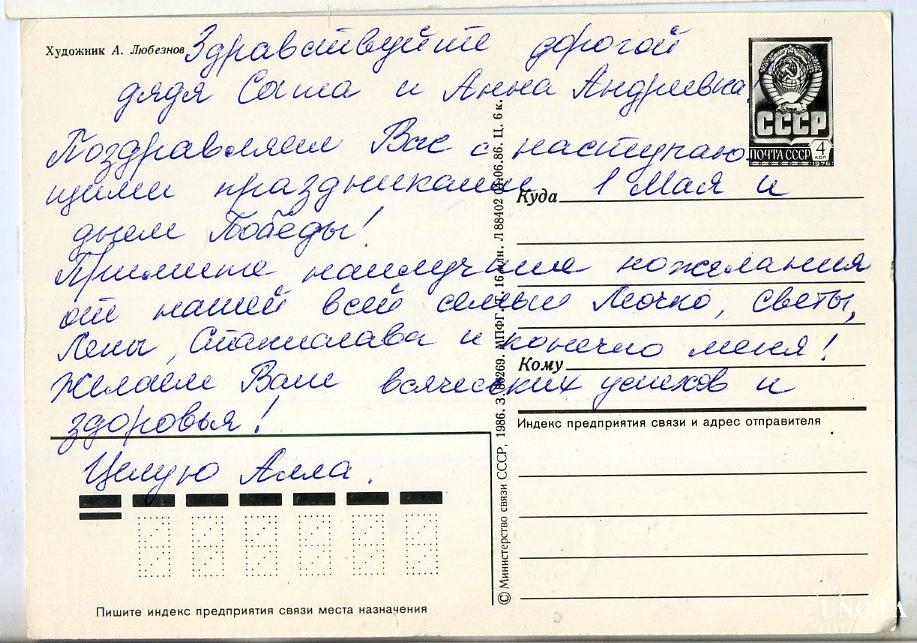 Художник А. Любезнов
Здравствуйте дорогой
дядя Саша и Анна Андреевна!
Поздравляем Вас с наступаю
щими праздниками 1 Мая и
днем Победы!
Примите наилучшие пожелания
от нашей всей семьи Мочко, Светы,
Лены, Станислава и конечно меня!
Желаем Вам всяческих успехов и
здоровья!
Целую Алла.
СССР
ПОЧТА СССР 4 коп
1976
Куда
Кому
Индекс предприятия связи и адрес отправителя
© Министерство связи СССР, 1986. З. 86269. МПФГ. 16 млн. Л 88402 06.86. Ц. 6 к.
Пишите индекс предприятия связи места назначения
UNC.UA